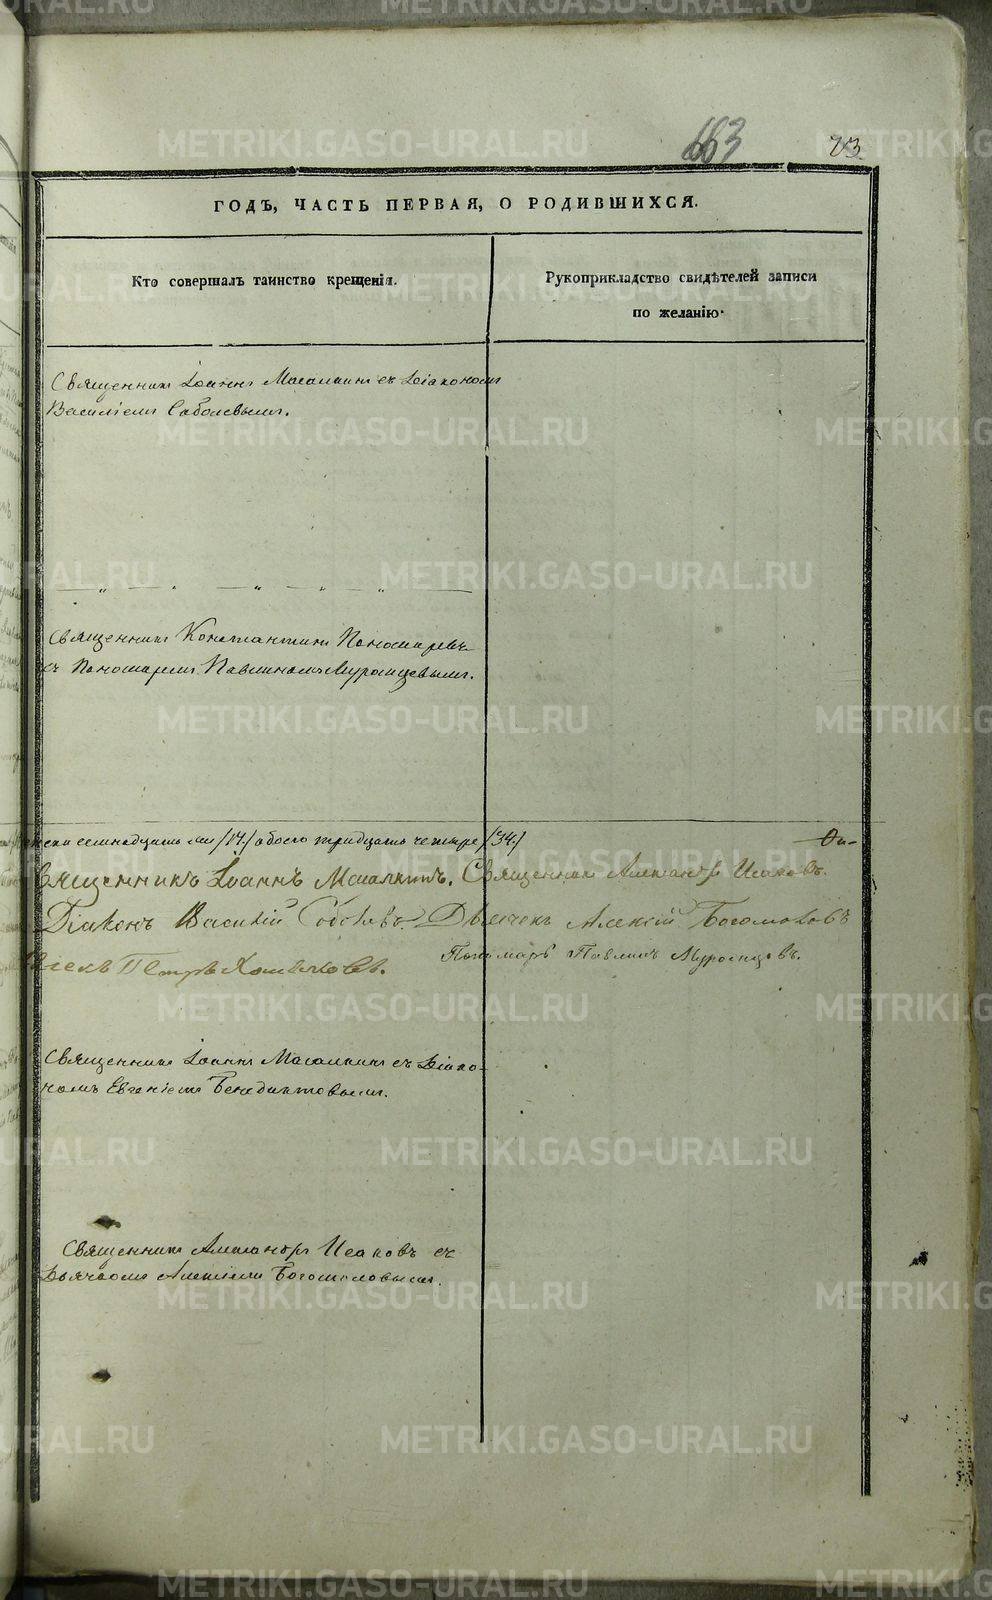 663 73.
ГОДЪ, ЧАСТЬ ПЕРВАЯ, О РОДИВШИХСЯ.
Кто совершалъ таинство крещенія.
Рукоприкладство свидѣтелей записи
по желанію.
Священникъ Іоаннъ Масалкинъ съ Діакономъ
Василіемъ Соболевымъ.
Священникъ Константинъ Пономаревъ
съ Пономаремъ Павлиномъ Муромцевымъ.
семнадцать /17./ обоего тридцать четыре /34./
Священникъ Іоаннъ Масалкинъ. Священникъ Александръ Исаковъ.
Діаконъ Василій Соболевъ. Дьячекъ Алексій Богомоловъ
Петръ Хомяковъ. Пономарь Павлинъ Муромцовъ.
Священникъ Іоаннъ Масалкинъ съ Діако-
номъ Евгеніемъ Бенедиктовымъ.
Священникъ Александръ Исаковъ съ
Дьячкомъ Алексіемъ Богомоловымъ.
METRIKI.GASO-URAL.RU